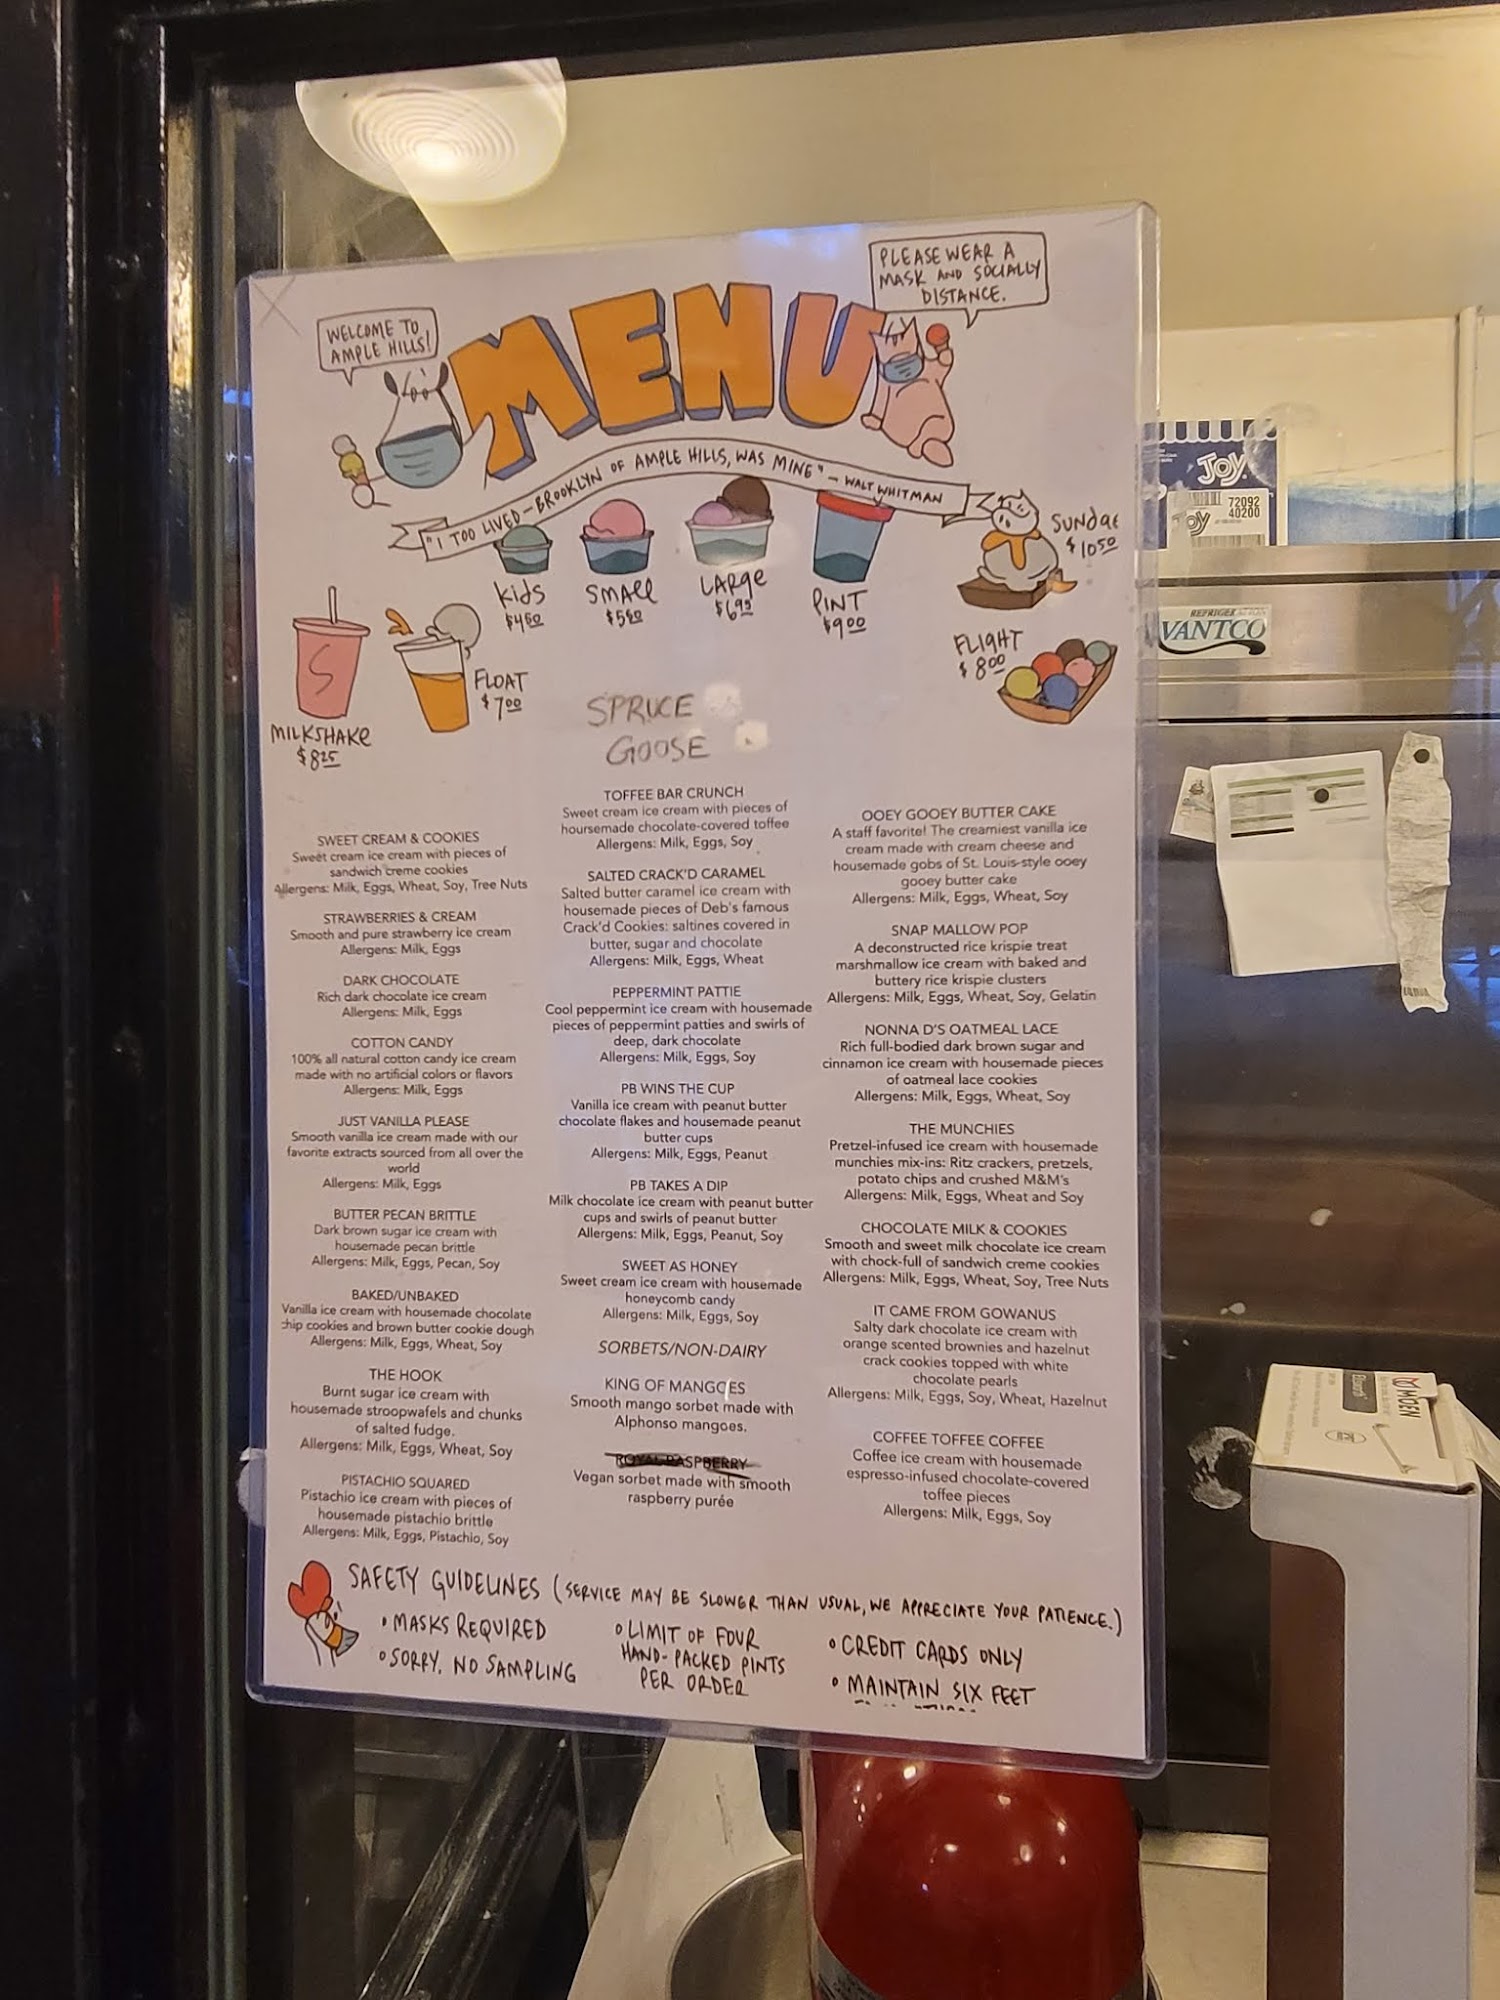 WELCOME TO
AMPLE HILLS!
MENU
PLEASE WEAR A
MASK AND SOCIALLY
DISTANCE.
"I TOO LIVED - BROOKLYN OF AMPLE HILLS, WAS MINE" - WALT WHITMAN
Kids
$450
SMALL
LARGE
$695
PINT
$900
SUNDAE
$1050
MILKSHAKE
$825
FLOAT
$700
FLIGHT
$800
SPRUCE
GOOSE
SWEET CREAM & COOKIES
Sweet cream ice cream with pieces of
sandwich creme cookies
Allergens: Milk, Eggs, Wheat, Soy, Tree Nuts
STRAWBERRIES & CREAM
Smooth and pure strawberry ice cream
Allergens: Milk, Eggs
DARK CHOCOLATE
Rich dark chocolate ice cream
Allergens: Milk, Eggs
COTTON CANDY
100% all natural cotton candy ice cream
made with no artificial colors or flavors
Allergens: Milk, Eggs
JUST VANILLA PLEASE
Smooth vanilla ice cream made with our
favorite extracts sourced from all over the
world
Allergens: Milk, Eggs
BUTTER PECAN BRITTLE
Dark brown sugar ice cream with
housemade pecan brittle
Allergens: Milk, Eggs, Pecan, Soy
BAKED/UNBAKED
Vanilla ice cream with housemade chocolate
chip cookies and brown butter cookie dough
Allergens: Milk, Eggs, Wheat, Soy
THE HOOK
Burnt sugar ice cream with
housemade stroopwafels and chunks
of salted fudge.
Allergens: Milk, Eggs, Wheat, Soy
PISTACHIO SQUARED
Pistachio ice cream with pieces of
housemade pistachio brittle
Allergens: Milk, Eggs, Pistachio, Soy
TOFFEE BAR CRUNCH
Sweet cream ice cream with pieces of
hoursemade chocolate-covered toffee
Allergens: Milk, Eggs, Soy
SALTED CRACK'D CARAMEL
Salted butter caramel ice cream with
housemade pieces of Deb's famous
Crack'd Cookies: saltines covered in
butter, sugar and chocolate
Allergens: Milk, Eggs, Wheat
PEPPERMINT PATTIE
Cool peppermint ice cream with housemade
pieces of peppermint patties and swirls of
deep, dark chocolate
Allergens: Milk, Eggs, Soy
PB WINS THE CUP
Vanilla ice cream with peanut butter
chocolate flakes and housemade peanut
butter cups
Allergens: Milk, Eggs, Peanut
PB TAKES A DIP
Milk chocolate ice cream with peanut butter
cups and swirls of peanut butter
Allergens: Milk, Eggs, Peanut, Soy
SWEET AS HONEY
Sweet cream ice cream with housemade
honeycomb candy
Allergens: Milk, Eggs, Soy
SORBETS/NON-DAIRY
KING OF MANGOES
Smooth mango sorbet made with
Alphonso mangoes.
ROYAL RASPBERRY
Vegan sorbet made with smooth
raspberry purée
OOEY GOOEY BUTTER CAKE
A staff favorite! The creamiest vanilla ice
cream made with cream cheese and
housemade gobs of St. Louis-style ooey
gooey butter cake
Allergens: Milk, Eggs, Wheat, Soy
SNAP MALLOW POP
A deconstructed rice krispie treat
marshmallow ice cream with baked and
buttery rice krispie clusters
Allergens: Milk, Eggs, Wheat, Soy, Gelatin
NONNA D'S OATMEAL LACE
Rich full-bodied dark brown sugar and
cinnamon ice cream with housemade pieces
of oatmeal lace cookies
Allergens: Milk, Eggs, Wheat, Soy
THE MUNCHIES
Pretzel-infused ice cream with housemade
munchies mix-ins: Ritz crackers, pretzels,
potato chips and crushed M&M's
Allergens: Milk, Eggs, Wheat and Soy
CHOCOLATE MILK & COOKIES
Smooth and sweet milk chocolate ice cream
with chock-full of sandwich creme cookies
Allergens: Milk, Eggs, Wheat, Soy, Tree Nuts
IT CAME FROM GOWANUS
Salty dark chocolate ice cream with
orange scented brownies and hazelnut
crack cookies topped with white
chocolate pearls
Allergens: Milk, Eggs, Soy, Wheat, Hazelnut
COFFEE TOFFEE COFFEE
Coffee ice cream with housemade
espresso-infused chocolate-covered
toffee pieces
Allergens: Milk, Eggs, Soy
SAFETY GUIDELINES (SERVICE MAY BE SLOWER THAN USUAL, WE APPRECIATE YOUR PATIENCE.)
• MASKS REQUIRED
• SORRY, NO SAMPLING
• LIMIT OF FOUR
HAND-PACKED PINTS
PER ORDER
• CREDIT CARDS ONLY
• MAINTAIN SIX FEET
JOY
72092
40200
JOY
VANTCO
MOEN